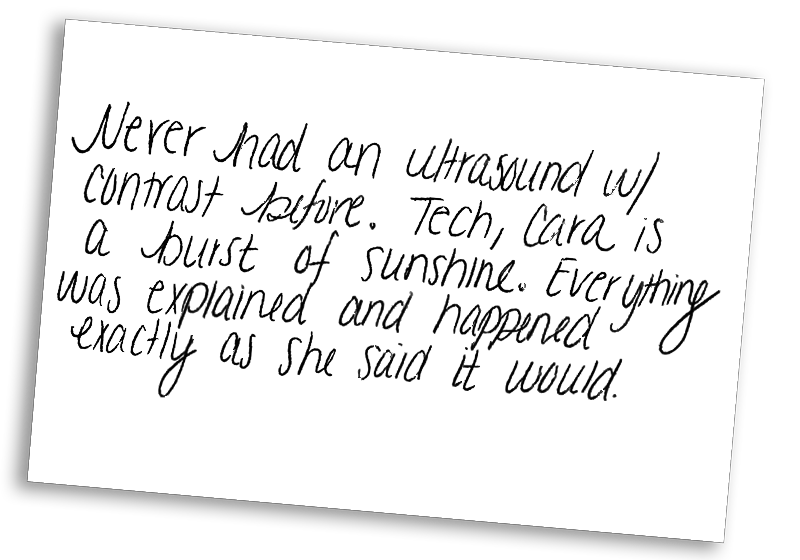 Never had an ultrasound w/
contrast before. Tech, Cara is
a burst of sunshine. Everything
was explained and happened
exactly as she said it would.